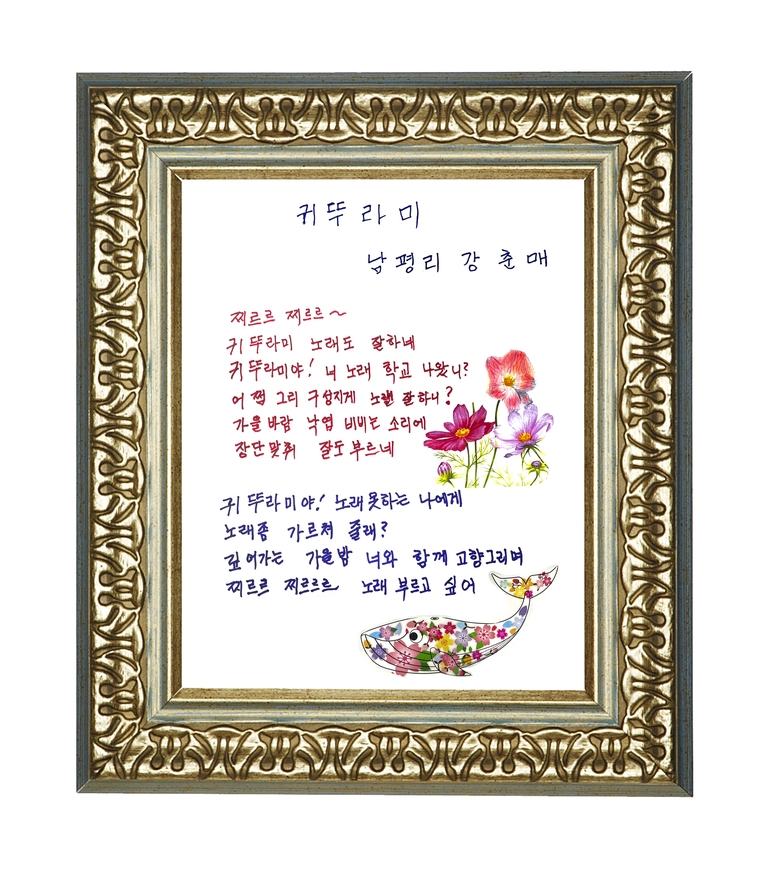 귀뚜라미
남평리 강춘매
찌르르 찌르르~
귀뚜라미 노래도 잘하네
귀뚜라미야! 너 노래 학교 나왔니?
어쩜 그리 구성지게 노랠 잘하니?
가을 바람 낙엽 비비는 소리에
장단맞춰 잘도 부르네
귀뚜라미야! 노래못하는 나에게
노래좀 가르쳐 줄래?
깊어가는 가을밤 너와 함께 고향그리며
찌르르 찌르르르 노래 부르고 싶어